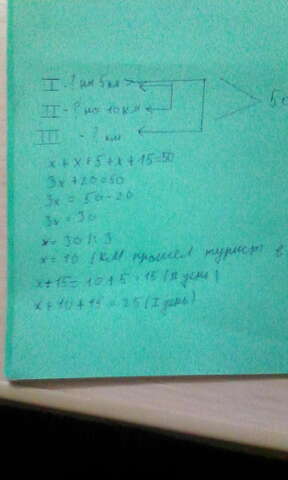 I - ? на 5 км > 50
II - ? на 10 км
III - ? км
x + x + 5 + x + 15 = 50
3x + 20 = 50
3x = 50 - 20
3x = 30
x = 30 : 3
x = 10 (км прошёл турист в
x + 15 = 10 + 5 = 15 (II день)
x + 10 + 15 = 25 (I день)